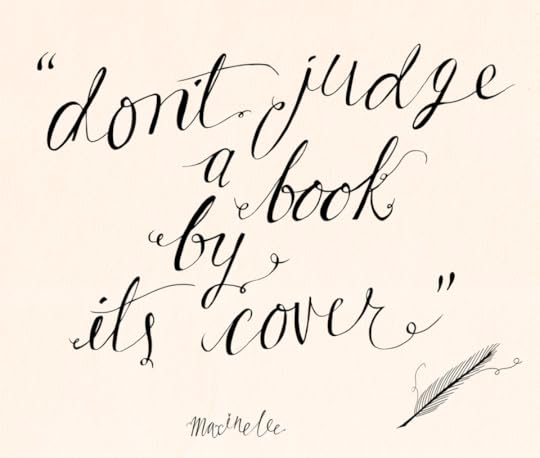 "don't judge
a book
by
its cover"
maxinelee